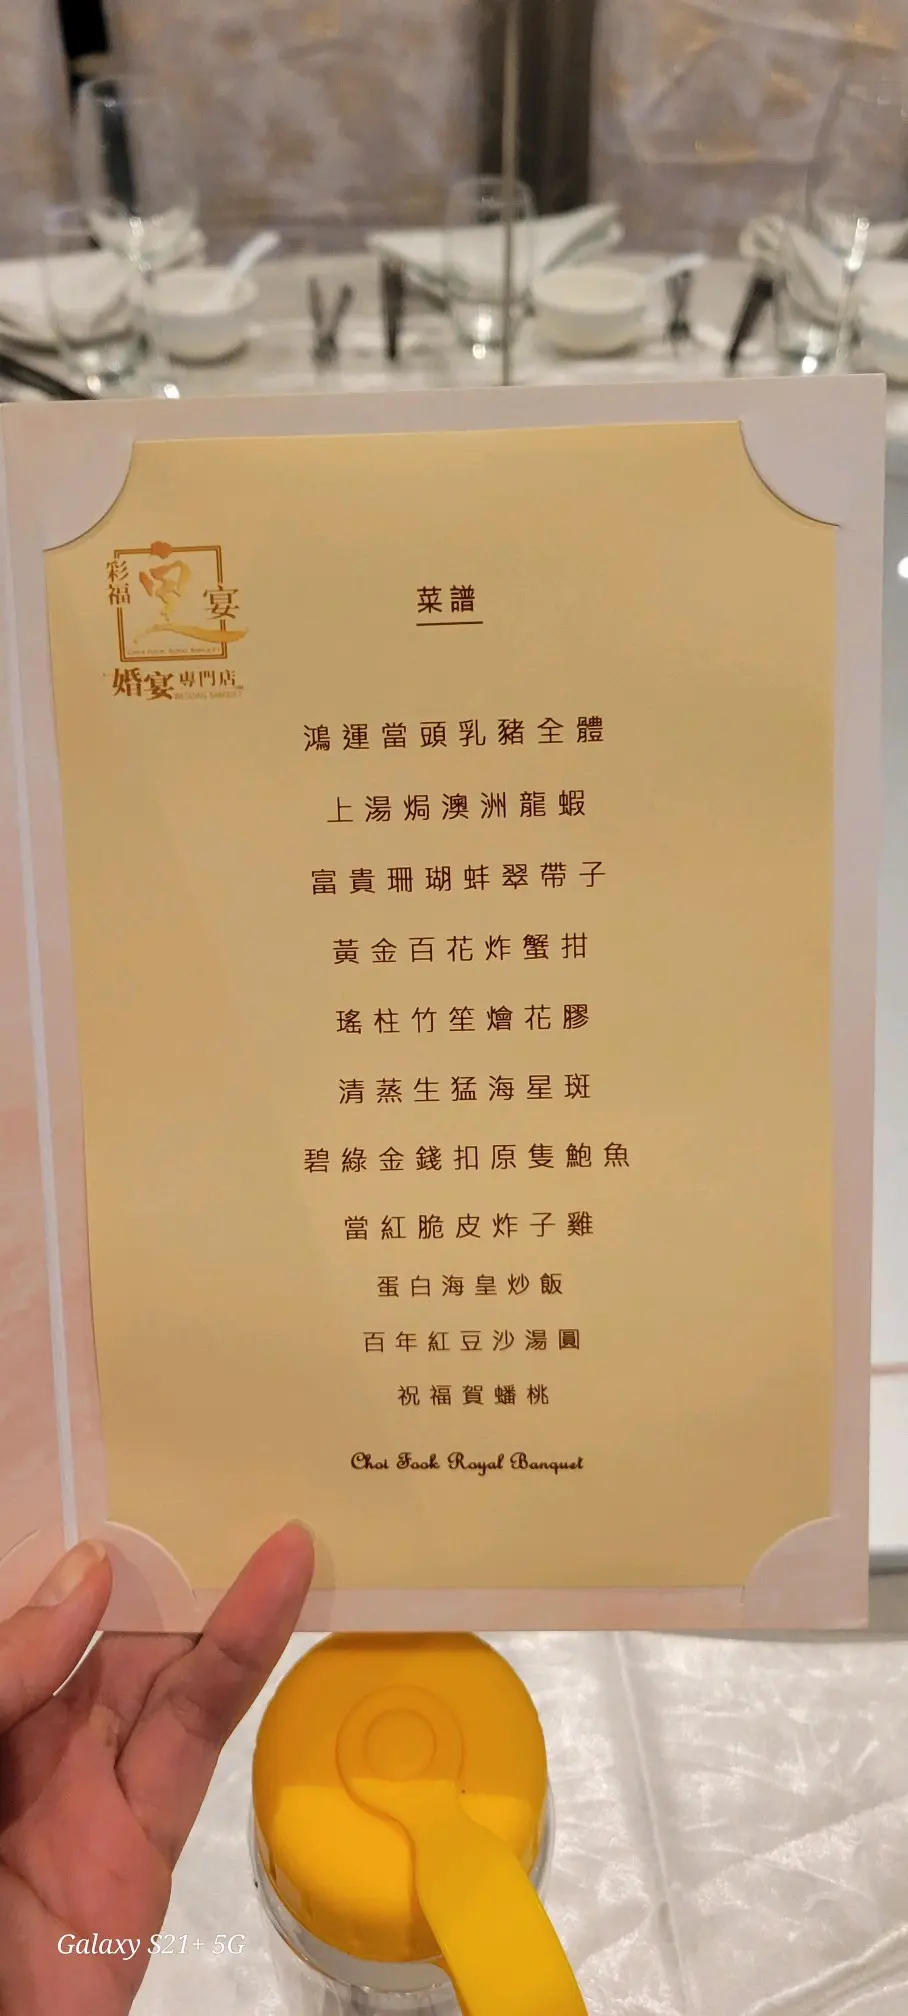 彩福皇宴
CHOI FOOK ROYAL BANQUET
婚宴專門店
WEDDING BANQUET
菜譜
鴻運當頭乳豬全體
上湯焗澳洲龍蝦
富貴珊瑚蚌翠帶子
黃金百花炸蟹拑
瑤柱竹笙燴花膠
清蒸生猛海星斑
碧綠金錢扣原隻鮑魚
當紅脆皮炸子雞
蛋白海皇炒飯
百年紅豆沙湯圓
祝福賀蟠桃
Choi Fook Royal Banquet
Galaxy S21+ 5G